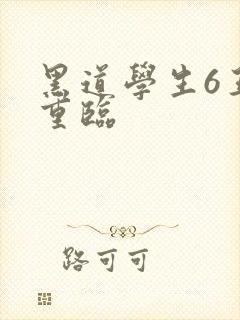 黑道學生6
重臨
路可可